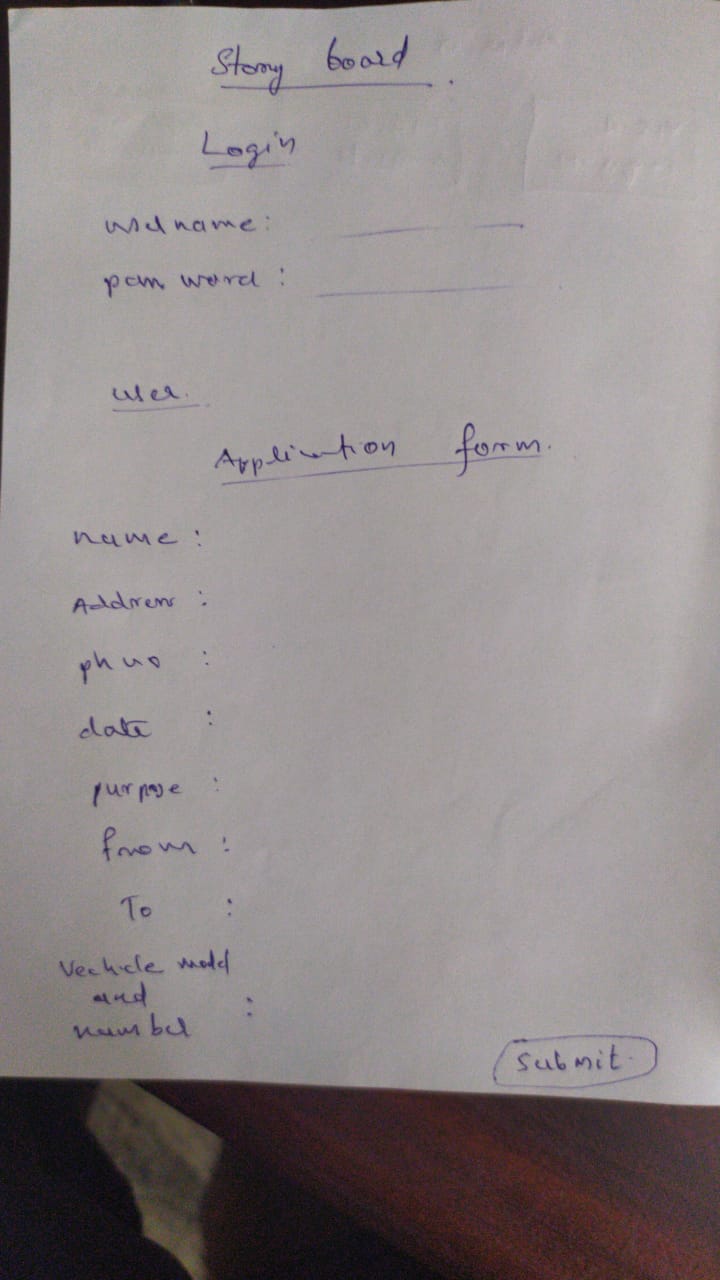 Story board.
Login
username:
pass word:
user.
Application form.
name:
Address:
ph no:
date:
purpose:
from:
To:
Vechicle model
and :
number
Submit.